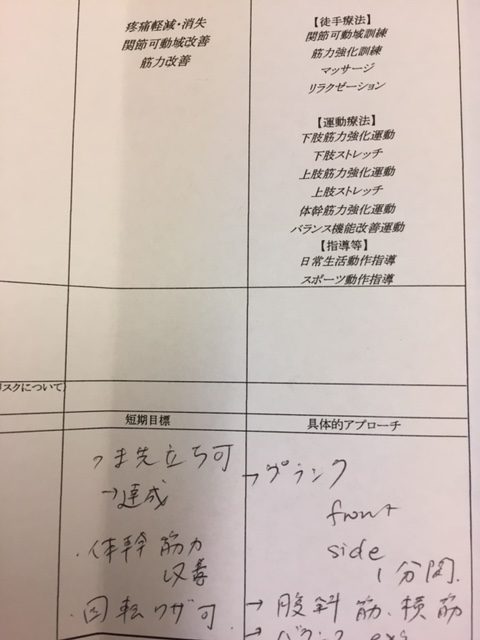 疼痛軽減・消失
関節可動域改善
筋力改善
【徒手療法】
関節可動域訓練
筋力強化訓練
マッサージ
リラクゼーション
【運動療法】
下肢筋力強化運動
下肢ストレッチ
上肢筋力強化運動
上肢ストレッチ
体幹筋力強化運動
バランス機能改善運動
【指導等】
日常生活動作指導
スポーツ動作指導
リスクについて
短期目標
具体的アプローチ
つま先立ち可
→達成
・体幹筋力
改善
・回転ワザ可
→プランク
front
side
1分間.
→腹斜筋、横筋